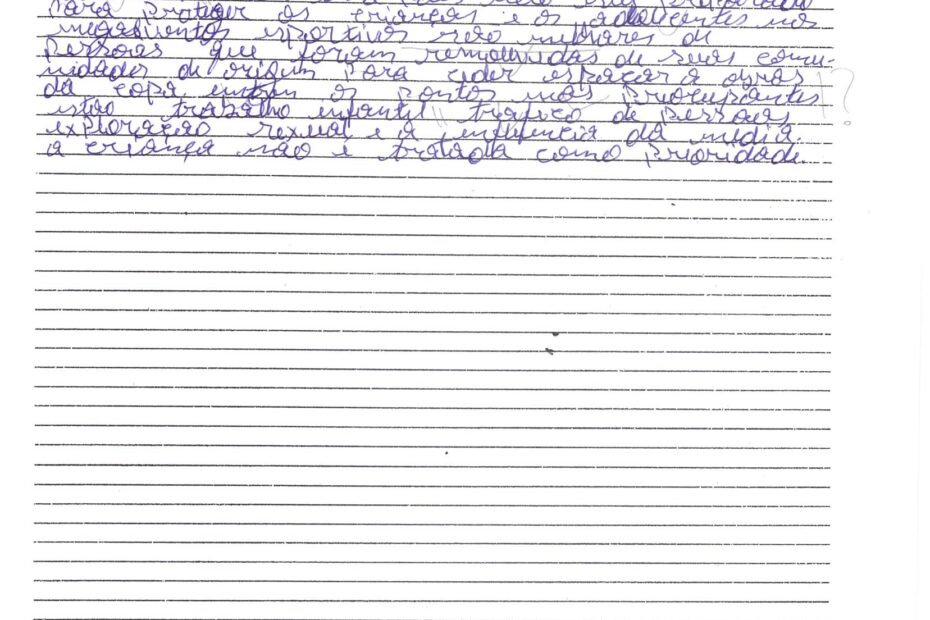 para proteger as crianças e os adolicentes nos
megaeventos esportivos são milhares de
pessoas que foram removidas de suas comu-
nidades de origem para ceder espaçar a obras
da copa, entram os pontos mas preocupantes
estão trabalho enfantil tráfico de pessoas
exploração sexual e a influencia da media.
a criança não e tratada como prioridade.
!?